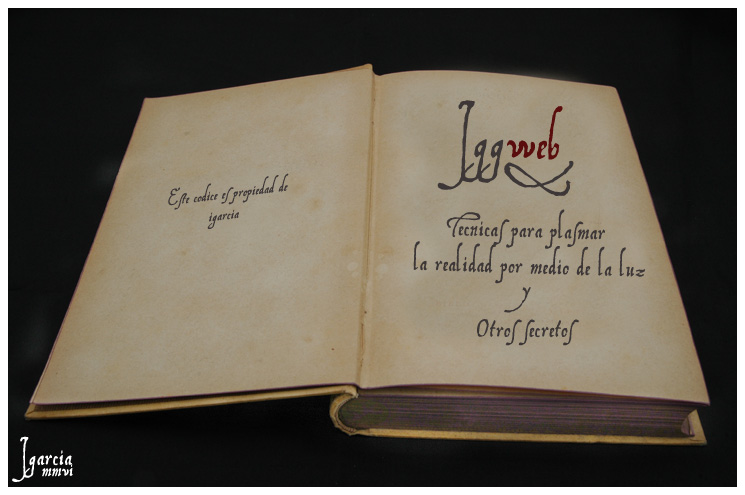 Este codice es propiedad de
igarcia
Jggweb
Tecnicas para plasmar
la realidad por medio de la luz
y
Otros secretos
Jgarcia
mmvi